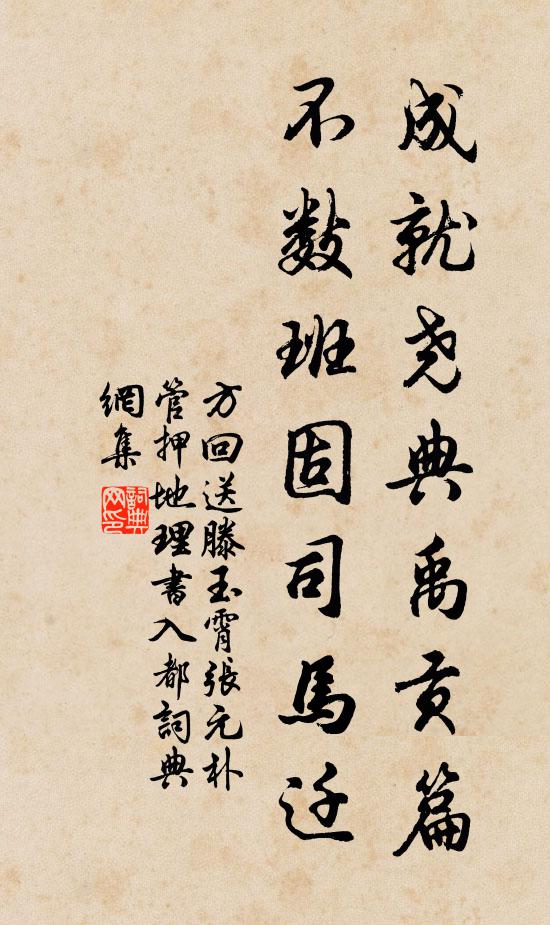 成就尧典禹贡篇
不数班固司馬迁
方回送滕玉霄張元朴
管押地理書入都詞典
網集
詞典網印